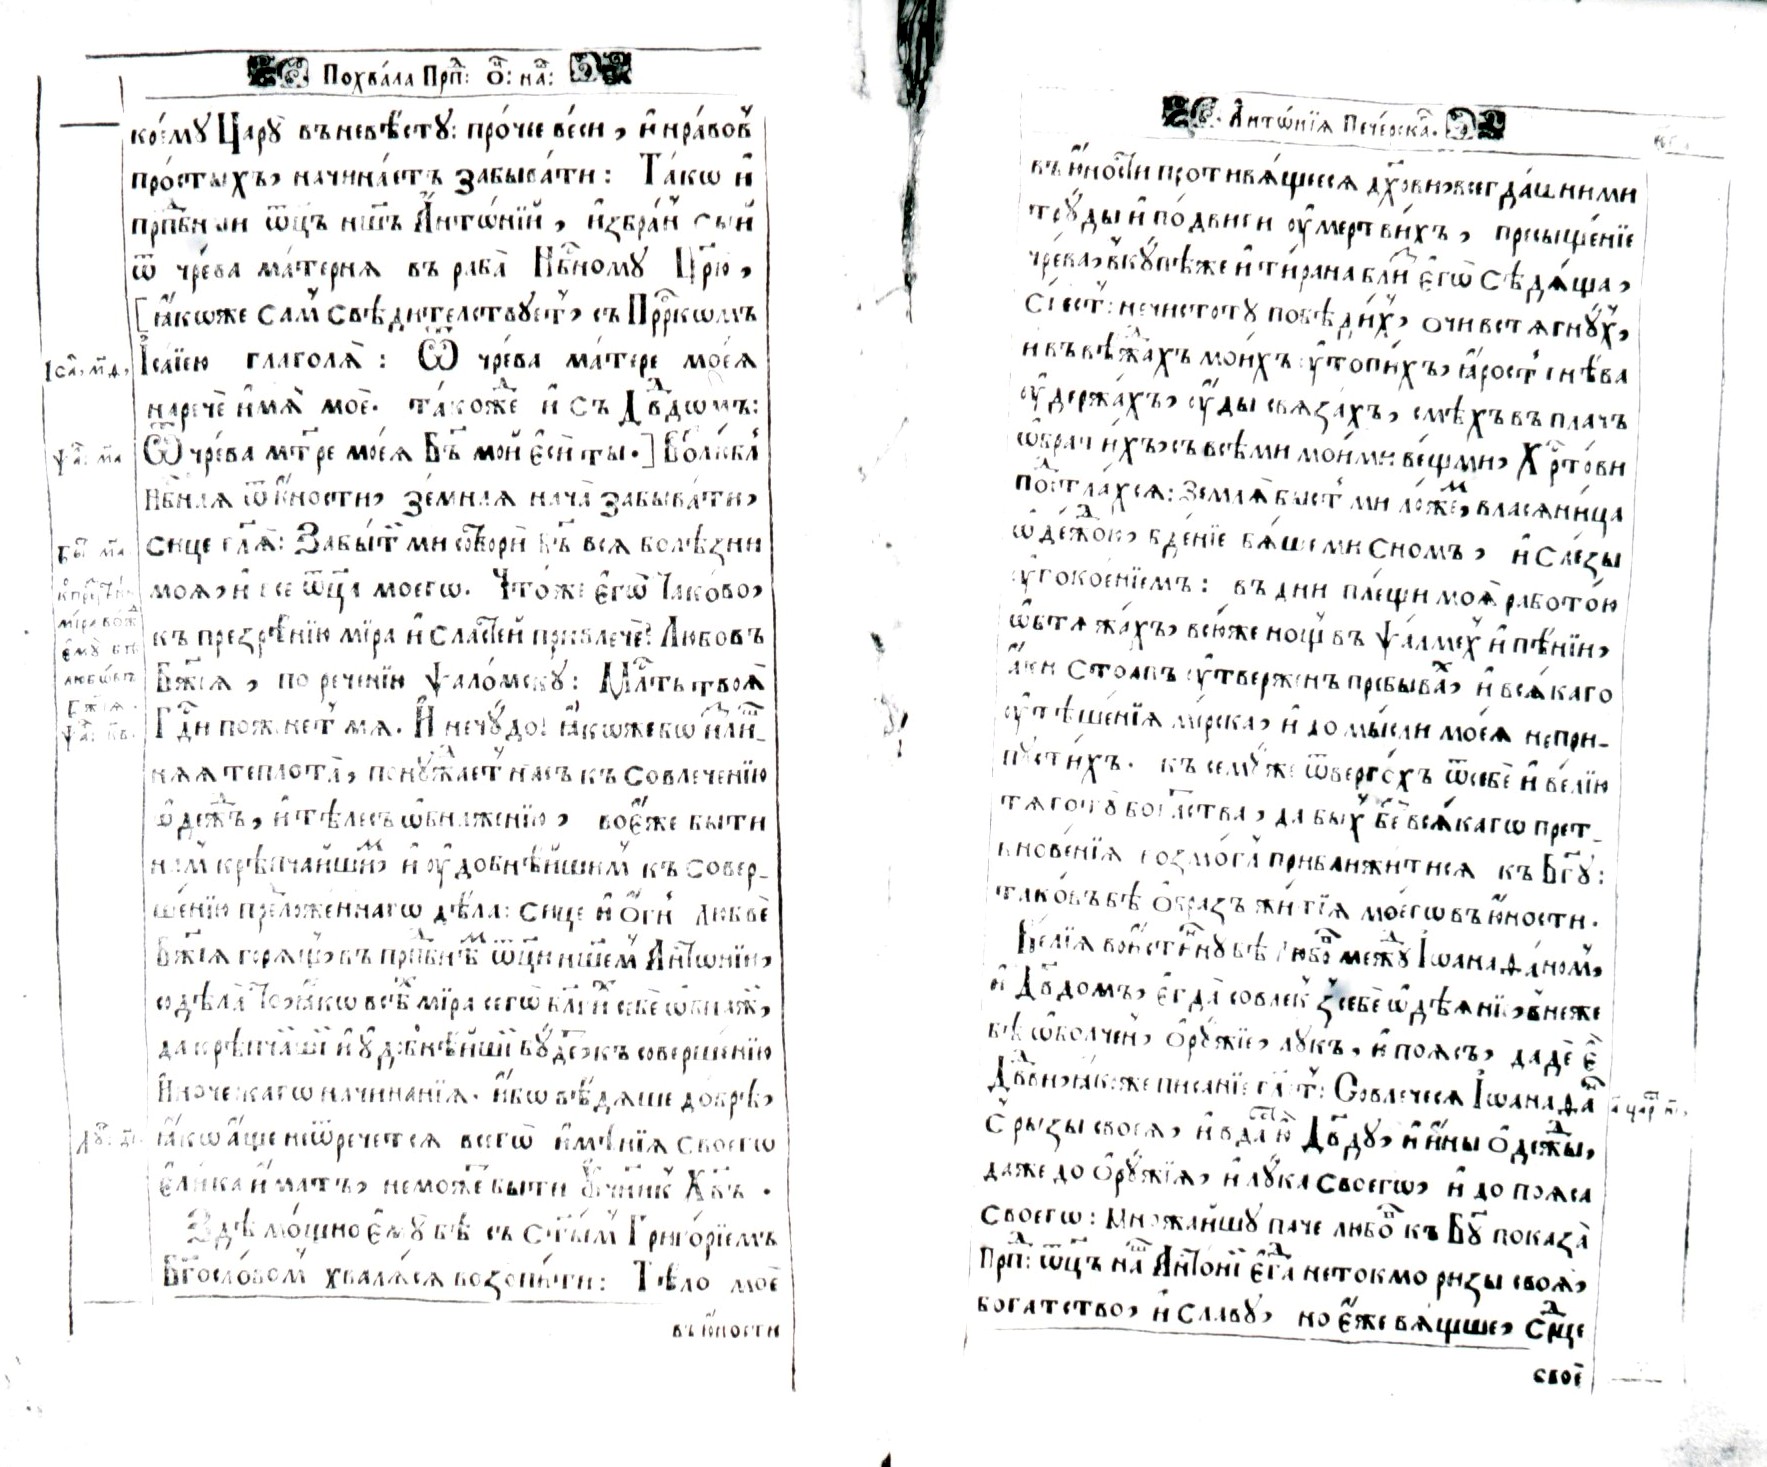 Похва́ла Прпⷣ: Ѻ҃ч: наⷲ:
кои́му Цару̀ въ невѣ́сту: про́чее ве́си, и҆ нра́вовъ
про́стыхъ, начина́етъ забыва́ти: Та́кѡ и҆
прпⷣбный ѿц҃ъ нш҃ъ А҆нтѡ́нїй, и҆збра́нъ сы́й
ѿ чре́ва ма́терня въ раба̀ Нбⷭ҇ному Цр҃ю,
[ꙗ҆́коже са́мъ свѣ́дителствуетъ, съ Прⷪ҇ркомъ
І҆са́їею глаго́ля: Ѿ чре́ва ма́тере моея̀
наречѐ и҆́мя моѐ. та́коже и҆ съ Дв҃дѡмъ:
Ѿ чре́ва мт҃ре моея̀ Бг҃ъ мой є҆сѝ ты̀.]
Нбⷭ҇ная ѿ ю҆́ности, зе́мная нача̀ забыва́ти,
сице гл҃я: Забы́ти ми сотворѝ Бг҃ъ вся болѣ́зни
моя̀, и҆ все ѿц҃а моегѡ. Что́ же є҆го̀ І҆а́ково,
къ презрѣ́нїю мі́ра и҆ сласте́й привлечѐ? Любо́въ
Бж҃їя, по рече́нїю ѱало́мску:
Гдⷭ҇и пожже́тъ мя. И҆ не чу́до! ꙗ҆́кожебо
няя теплота̀, понужда́етъ на́съ къ совлече́нїю
ѻ҆де́ждъ, и҆ тѣлесъ ѡ҆бнаже́нїю, во є҆́же бы́ти
на́мъ крѣпча́йшим, и҆ оу҆добнѣ́йшимъ къ совер-
ше́нїю предложе́ннагѡ дѣ́ла: сице и҆ ѻ҆́гнь любвѐ
Бж҃їя горя́щъ въ прпⷣбнѣмъ ѿц҃и нш҃емъ А҆нтѡ́нїи,
содѣ́ла то̀, ꙗ҆́кѡ всѣ́хъ мі́ра сегѡ̀ бл҃гъ себѐ ѡ҆бнажи,
да крѣпча́йшїй и҆ оу҆добнѣ́йшїй бу́детъ къ соверше́нїю
И҆́ноческагѡ начина́нїя. и҆́бѡ вѣ́дяше до́брѣ,
ꙗ҆́кѡ а҆́ще не ѿрече́тся всегѡ̀ и҆мѣ́нїя своегѡ
є҆ли́ка и҆́мать, не мо́жетъ бы́ти ѹ҆чн҃икъ Хв҃ъ.
Здѣ̀ мо́щно є҆му̀ бѣ̀ съ ст҃ы́мъ Григо́рїемъ
Бг҃осло́вомъ хваля́ся возопи́ти: Тѣ́ло моѐ
въ ю҆́ности
І҆са́ї, м҃д,
ѱаⷧ: к҃а
Бы҃т м҃а.
к презрѣ́нїю
мі́ра вожд
є҆му̀ бы́
любо́въ
Бж҃їя.
Лук: д҃і
А҆нтѡ́нїя Пече́рска.
въ ю҆́ности противя́щееся дх҃овн, всегда́шними
труды̀ и҆ по́двиги оу҆мертви́хъ, пресыще́нїе
чре́ва, вку́пѣ же и҆ тира́на бли́з є҆гѡ̀ сѣдя́ща,
сі есть: нечистоту̀ побѣди́хъ, ѻчи встягну́хъ,
и въ вѣ́ждахъ мои́хъ оу҆топи́хъ, ꙗ҆рость гнѣ́ва
оу҆держа́хъ, оу҆́ды связа́хъ, смѣ́хъ въ плачъ
ѡ҆брати́хъ, съ всѣми мои́ми ве́щми, Хрⷭ҇то́ви
Земля̀ бы́сть ми ло́жем, власяни́ца
ѡ҆де́ждою, бде́нїе бя́ше ми сномъ, и҆ сле́зы
оу҆покое́нїемъ: въ дни пле́щи моя̀ рабо́тою
ѡ҆бтяжа́хъ, всю́же нощъ въ ѱалмѣ́хъ и҆ пѣ́нїи,
а҆́ки сто́лпъ оу҆тверже́нъ пребыва́хъ, и҆ вся́каго
оу҆тѣше́нїя ми́рска, и҆ до мы́сли моея̀ не при-
пусти́хъ. къ сему́ же ѿверго́хъ ѿ себѐ и҆ ве́лїю
тяготу̀ бога́тства, да бы́хъ без вся́кагѡ прет-
кнове́нїя возмо́глъ прибли́житися къ Бг҃у:
тако́въ бѣ̀ ѻ҆́бразъ житїя̀ моегѡ въ ю҆́ности.
Ве́лїя вои́стинну бѣ̀ любовъ между І҆ѡанаѳа́номъ,
и҆ Дв҃домъ, є҆гда̀ совлекъ з себѐ ѻ҆дѣя́нїе, в не́же
бѣ̀ ѡ҆болче́нъ, ѻ҆ру́жїе, лукъ, и҆ поясъ, дадѐ є҆
Дв҃ви, ꙗ҆́коже писанїе гл҃етъ: Совлечеся І҆ѡанаѳан
с ризы своея̀, и҆ вдаⷭ҇ ю̀ Дв҃ду, и҆ и҆́ны ѻ҆дежды,
даже до ѻ҆ру́жїя, и҆ лу́ка своегѡ, и҆ до пояса
своегѡ: Мно́жайшу паче любовъ къ Бг҃у показа̀
Прпⷣ: ѿц҃ъ наⷲ҇ А҆нто́нїй є҆гда̀ не то́кмо ризы своя̀,
богатство, и҆ славу, но є҆́же вя́щше, Срⷣце
своѐ
а҃ цар҃